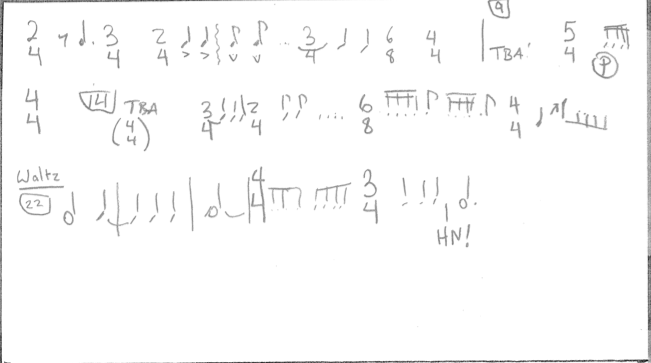 9
2/4 3/4 2/4 ... 3/4 6/8 4/4 TBA! 5/4 P
4/4 14 TBA (4/4) 3/4 2/4 .... 6/8 4/4
Waltz
22 4/4 3/4
HN!